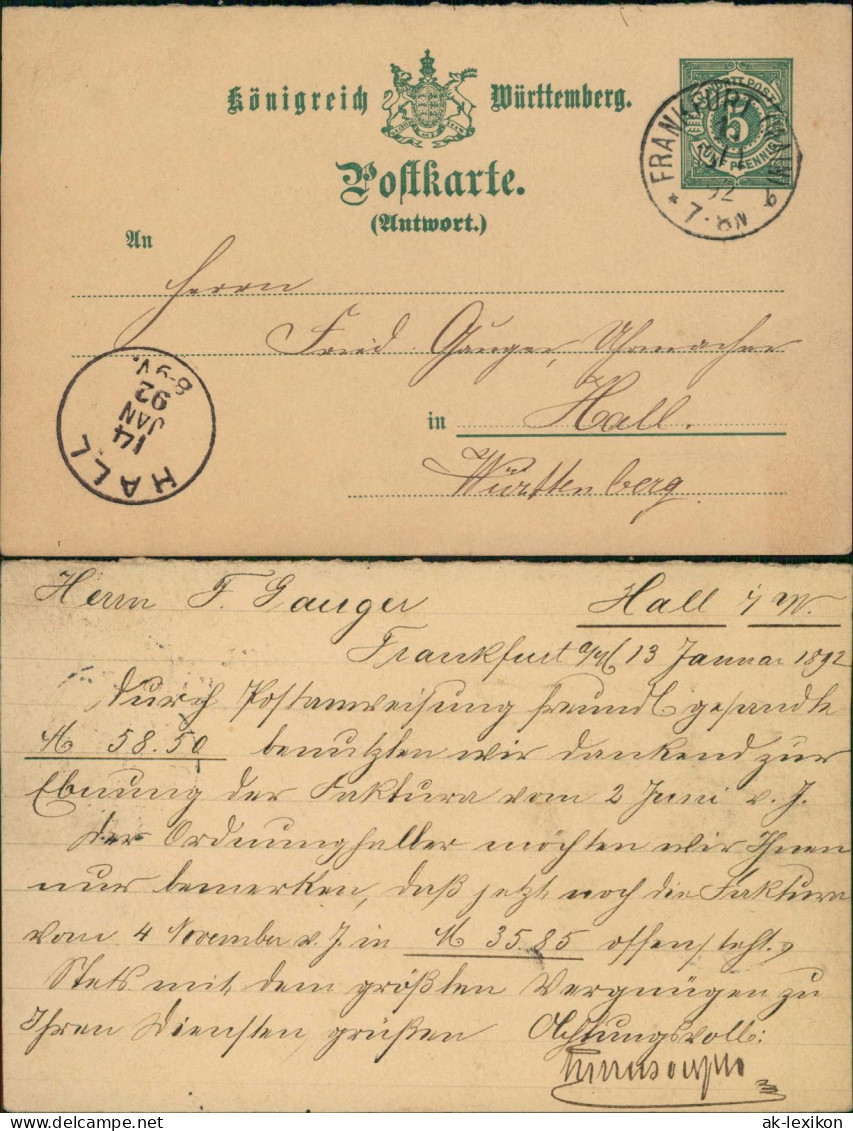 Königreich Württemberg.
WÜRTT. POST
5
FÜNF PFENNIG
FRANKFURT (MAIN) 9
92
7-8N
Postkarte.
(Antwort.)
An
Herrn
Fried. Gauger, Uhrmacher
in Hall.
Württenberg
HALL
14
JAN
92
8-9V.
Herrn F. Gauger Hall i/W.
Frankfurt a/M 13 Januar 1892
Durch Postanweisung freundl gesandte
M 58.50 benutzten wir dankend zur
Ebnung der Faktura vom 2 Juni v. J.
Der Ordnung halber möchten wir Ihnen
nur bemerken, daß jetzt noch die Faktura
vom 4 November v. J. in M 35.85 offen steht,
Stets mit dem größten Vergnügen zu
Ihren Diensten grüßen Achtungsvoll:
ak-lexikon.de